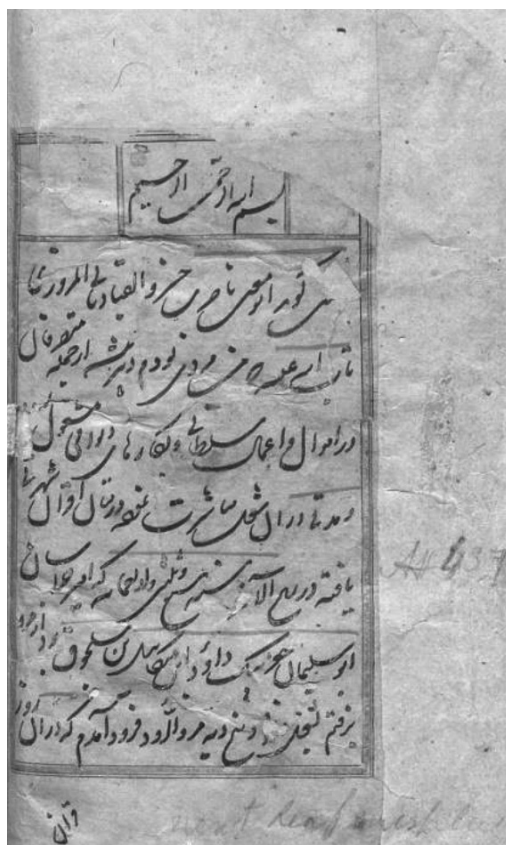 بسم الله الرحمن الرحیم
چنین گوید ابو معین ناصر خسرو القبادیانی المروزی
تاب الله علیه که من مردی بودم دبیر پیشه از جمله متصرفان
در اموال و اعمال سلطانی و بکارهای دیوانی مشغول
و مدتی در آن شغل مباشرت نموده در میان اقران شهرتی
یافته در ربیع الآخر سنه سبع و ثلثین و اربعمایه که امیر خراسان
ابو سلیمان جغری بیک داؤد بن میکائیل بن سلجوق بود از مرو
برفتم بشغل و پنج دیه مروالرود فرود آمدم که در آن روز
قران
AH 437
next leaf